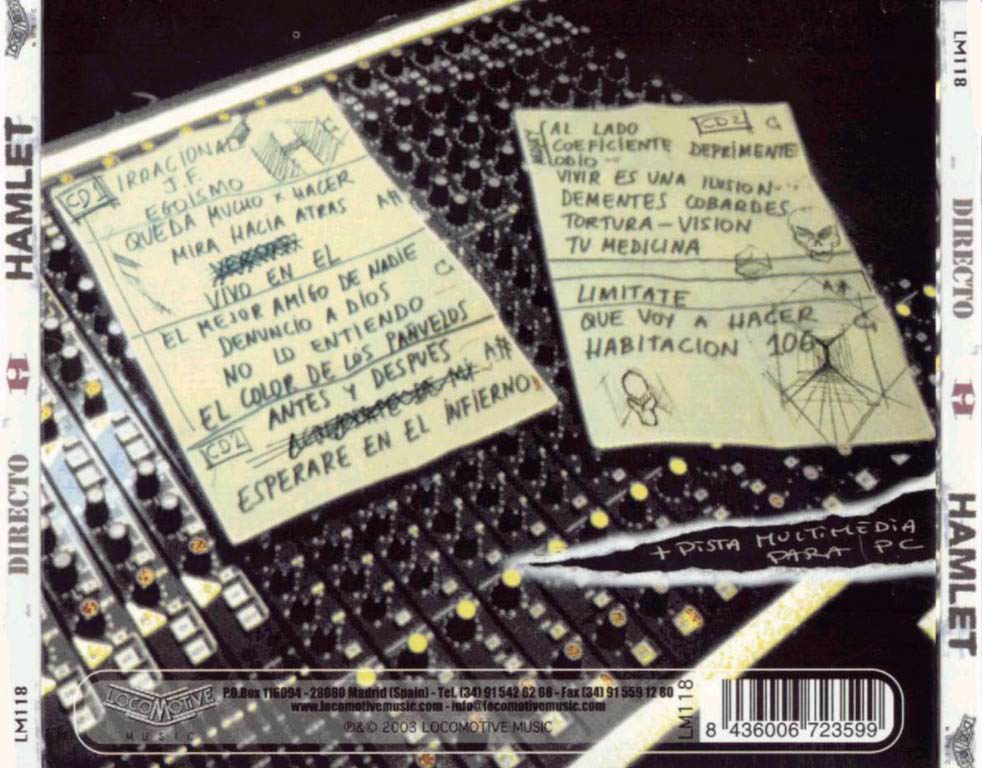 LOCOMOTIVE
HAMLET
DIRECTO
LM118
CD1 IRRACIONAL C
J.F.
EGOISMO
QUEDA MUCHO X HACER
MIRA HACIA ATRAS A#
VIVO EN EL
EL MEJOR AMIGO DE NADIE
DENUNCIO A DIOS C
NO LO ENTIENDO
EL COLOR DE LOS PAÑUELOS
ANTES Y DESPUES A#
CD2
ESPERARE EN EL INFIERNO
AL LADO CD2 C
COEFICIENTE DEPRIMENTE
ODIO
VIVIR ES UNA ILUSION
DEMENTES COBARDES
TORTURA - VISION
TU MEDICINA
LIMITATE A#
QUE VOY A HACER C
HABITACION 106
+ PISTA MULTIMEDIA
PARA PC
LOCOMOTIVE
MUSIC
P.O.Box 116094 - 28080 Madrid (Spain) - Tel. (34) 91 542 02 68 - Fax (34) 91 559 12 80
www.locomotivemusic.com - info@locomotivemusic.com
℗&© 2003 LOCOMOTIVE MUSIC
LM118
8 436006 723599
LM118
DIRECTO
HAMLET